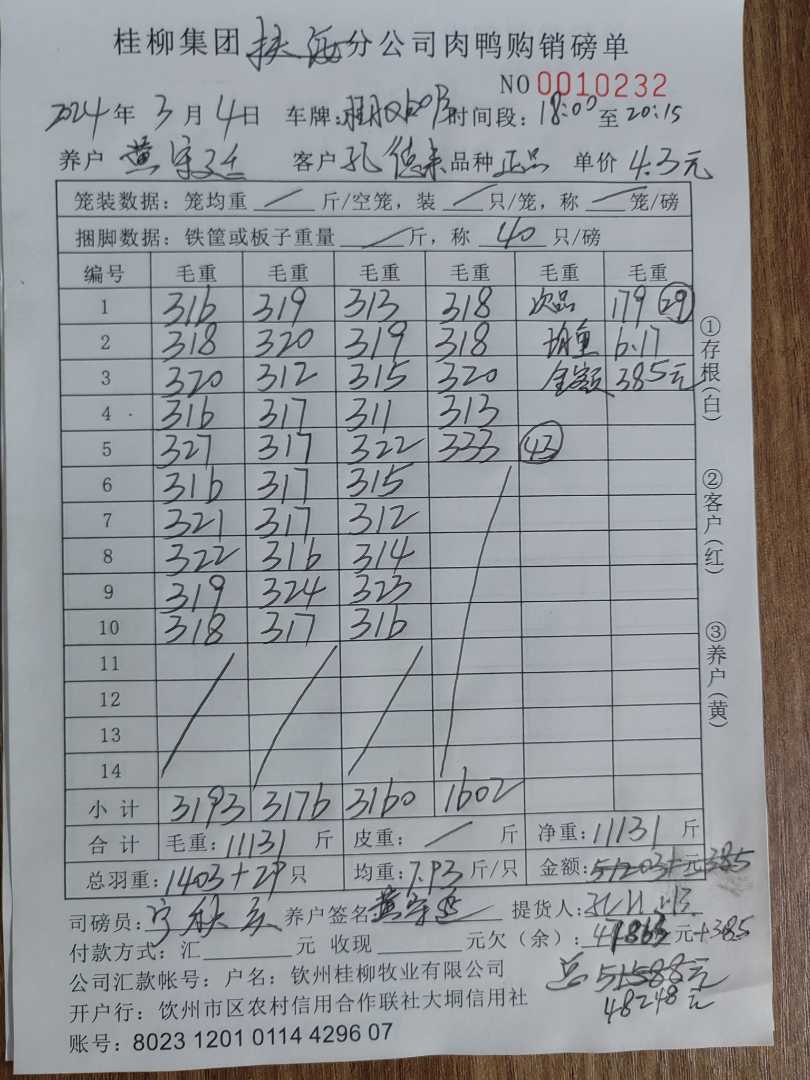 桂柳集团 分公司肉鸭购销磅单
NO 0010232
2024年3月4日 车牌: 时间段: 18:00至20:15
养户 黄 客户 孔德 品种 正品 单价 4.3元
笼装数据: 笼均重 / 斤/空笼, 装 / 只/笼, 称 / 笼/磅
捆脚数据: 铁筐或板子重量 / 斤, 称 40 只/磅
编号 毛重 毛重 毛重 毛重 毛重 毛重
1 316 319 313 318 次品 179 29
2 318 320 319 318 均重 6.17
3 320 312 315 320 金额 385元
4 316 317 311 313
5 327 317 322 333 43
6 316 317 315
7 321 317 312
8 322 316 314
9 319 324 323
10 318 317 316
11
12
13
14
小计 3193 3176 3160 1602
合计 毛重: 11131 斤 皮重: / 斤 净重: 11131 斤
总羽重: 1403+29 只 均重: 7.93 斤/只 金额: 51203元+385
司磅员: 养户签名 黄 提货人:
付款方式: 汇 元 收现 元欠(余): 47863元+385
公司汇款帐号: 户名: 钦州桂柳牧业有限公司
51588元
开户行: 饮州市区农村信用合作联社大垌信用社
48248元
账号: 8023 1201 0114 4296 07
①存根(白)
②客户(红)
③养户(黄)